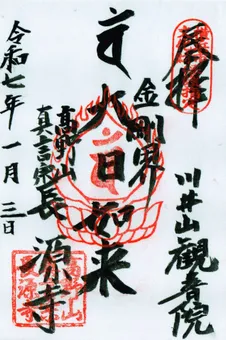 奉拝
川井山観音院
金剛界
大日如来
高野山
真言宗長源寺
令和七年一月三日